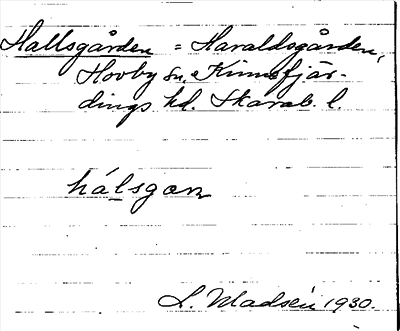 Hallsgården = Haraldsgården,
Hovby sn, Kinnefjär-
dings hd. Skarab. l.
hálsgan
L. Madsén 1930.